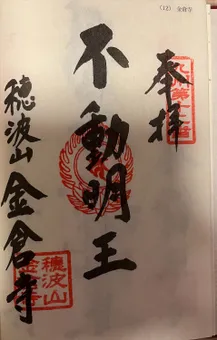 (12) 金倉寺
奉拝
不動明王
穂波山 金倉寺
穂波山
金倉寺